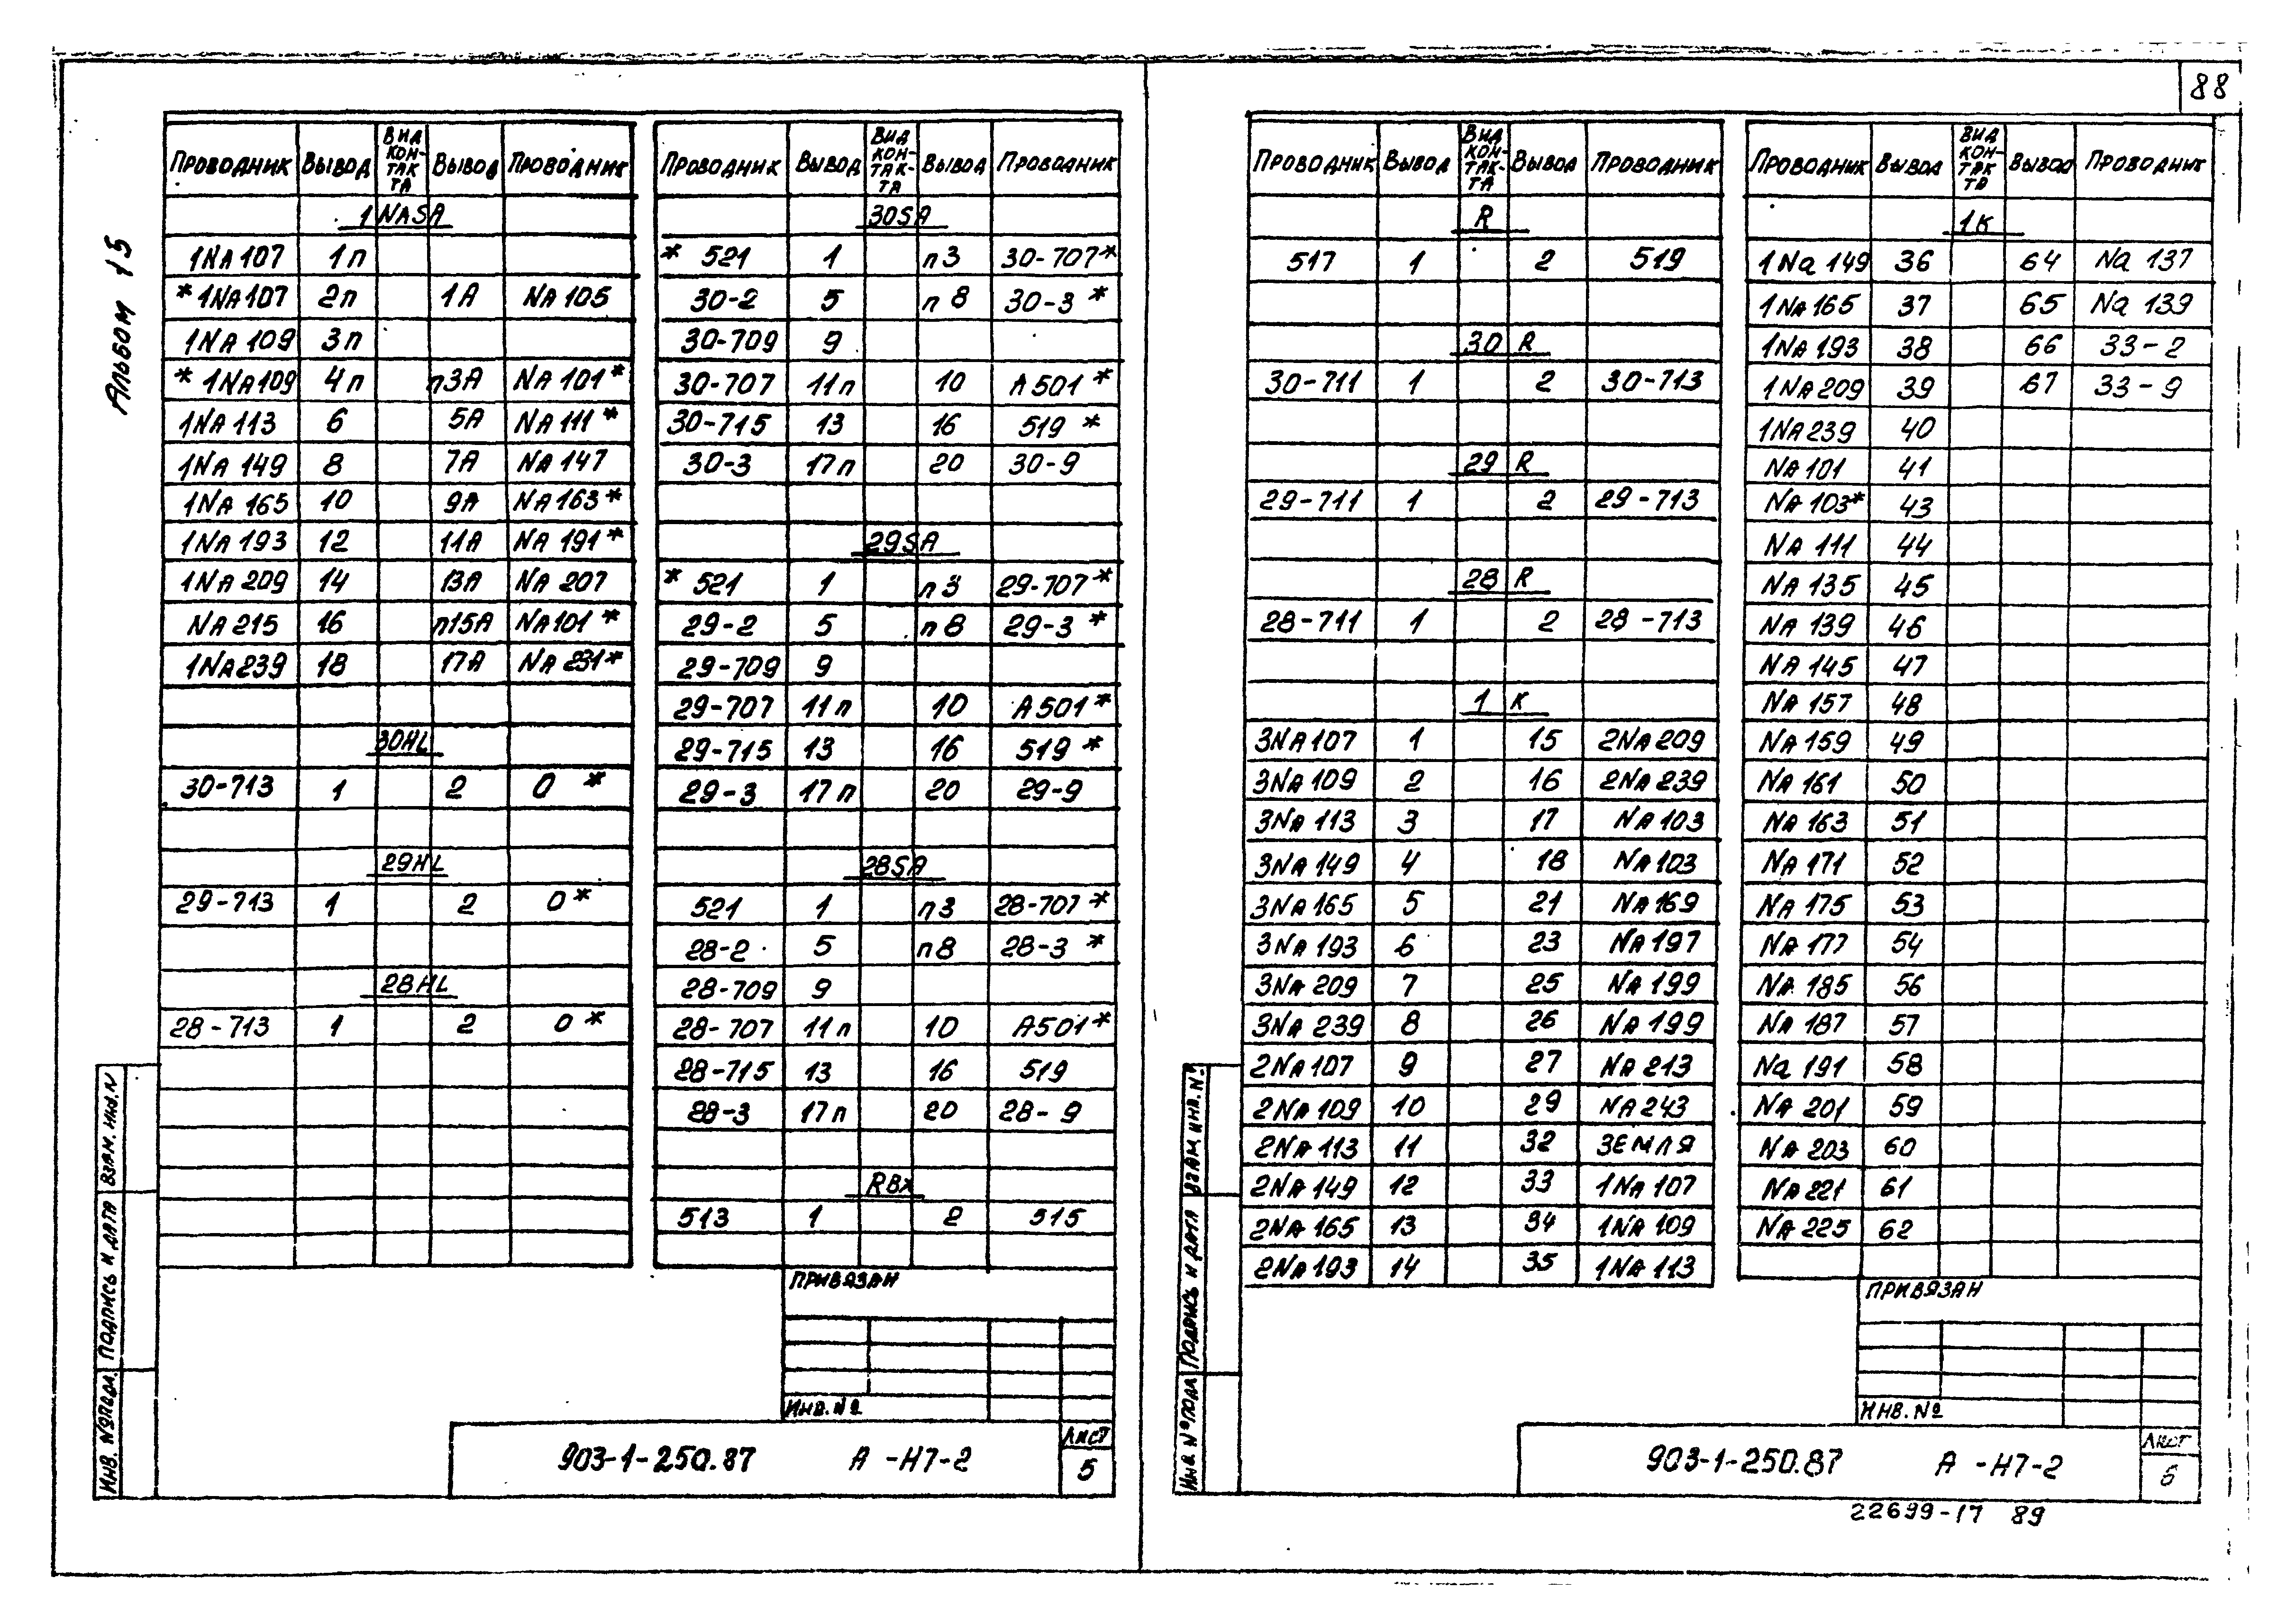 88
Альбом 15
Проводник Вывод Вид контакта Вывод Проводник
1NASA
1NA107 1п
*1NA107 2п 1А NA105
1NA109 3п
*1NA109 4п п3А NA101*
1NA113 6 5А NA111*
1NA149 8 7А NA147
1NA165 10 9А NA163*
1NA193 12 11А NA191*
1NA209 14 13А NA207
NA215 16 п15А NA101*
1NA239 18 17А NA231*
30HL
30-713 1 2 0 *
29HL
29-713 1 2 0*
28HL
28-713 1 2 0*
Проводник Вывод Вид контакта Вывод Проводник
30SA
* 521 1 п3 30-707*
30-2 5 п8 30-3*
30-709 9
30-707 11п 10 А501*
30-715 13 16 519*
30-3 17п 20 30-9
29SA
* 521 1 п3 29-707*
29-2 5 п8 29-3*
29-709 9
29-707 11п 10 А501*
29-715 13 16 519*
29-3 17п 20 29-9
28SA
521 1 п3 28-707*
28-2 5 п8 28-3*
28-709 9
28-707 11п 10 А501*
28-715 13 16 519
28-3 17п 20 28-9
RВх
513 1 2 515
Привязан
Инв. №
903-1-250.87 А -Н7-2
Лист
5
Инв. № подл. Подпись и дата Взам. инв. N
Проводник Вывод Вид контакта Вывод Проводник
R
517 1 2 519
30 R
30-711 1 2 30-713
29 R
29-711 1 2 29-713
28 R
28-711 1 2 28-713
1 К
3NA107 1 15 2NA209
3NA109 2 16 2NA239
3NA113 3 17 NA103
3NA149 4 18 NA103
3NA165 5 21 NA169
3NA193 6 23 NA197
3NA209 7 25 NA199
3NA239 8 26 NA199
2NA107 9 27 NA213
2NA109 10 29 NA243
2NA113 11 32 Земля
2NA149 12 33 1NA107
2NA165 13 34 1NA109
2NA193 14 35 1NA113
Проводник Вывод Вид контакта Вывод Проводник
1К
1Na149 36 64 Na137
1NA165 37 65 Na139
1NA193 38 66 33-2
1NA209 39 67 33-9
1NA239 40
NA101 41
NA103* 43
NA111 44
NA135 45
NA139 46
NA145 47
NA157 48
NA159 49
NA161 50
NA163 51
NA171 52
NA175 53
NA177 54
NA185 56
NA187 57
Na191 58
NA201 59
NA203 60
NA221 61
NA225 62
Привязан
Инв. №
903-1-250.87 А -Н7-2
Лист
6
Инв. № подл Подпись и дата Взам. инв. N°
22699-17 89